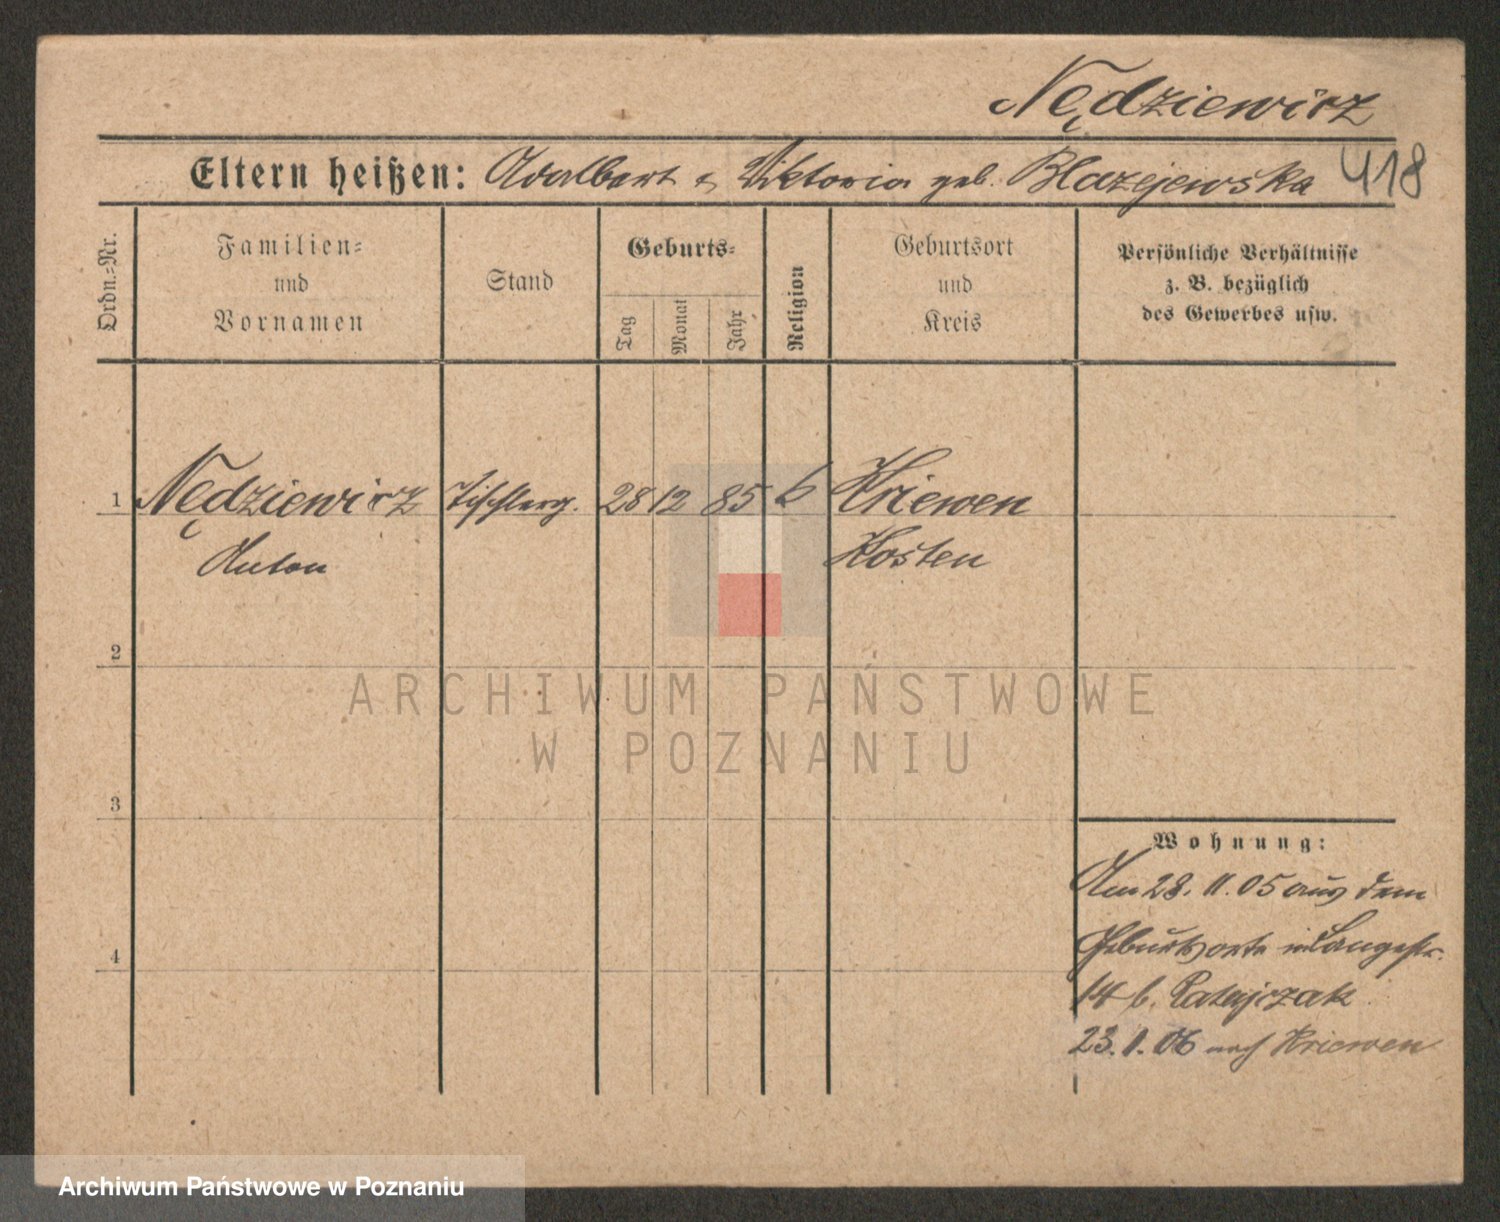 Nędziewicz
Eltern heißen: Adalbert & Viktoria geb. Blazejewska 418
Ordn.-Nr.
Familien-
und
Vornamen
Stand
Geburts-
Tag
Monat
Jahr
Religion
Geburtsort
und
Kreis
Persönliche Verhältnisse
z. B. bezüglich
des Gewerbes usw.
1 Nędziewicz Tischlerg. 28 12 85 k Kriewen
Anton Kosten
2
ARCHIWUM PAŃSTWOWE
W POZNANIU
3
Wohnung:
Am 28. 11. 05 aus dem
Geburtsorte n. Langestr.
4
14 b. Ratajczak
23. 1. 06 nach Kriewen
Archiwum Państwowe w Poznaniu